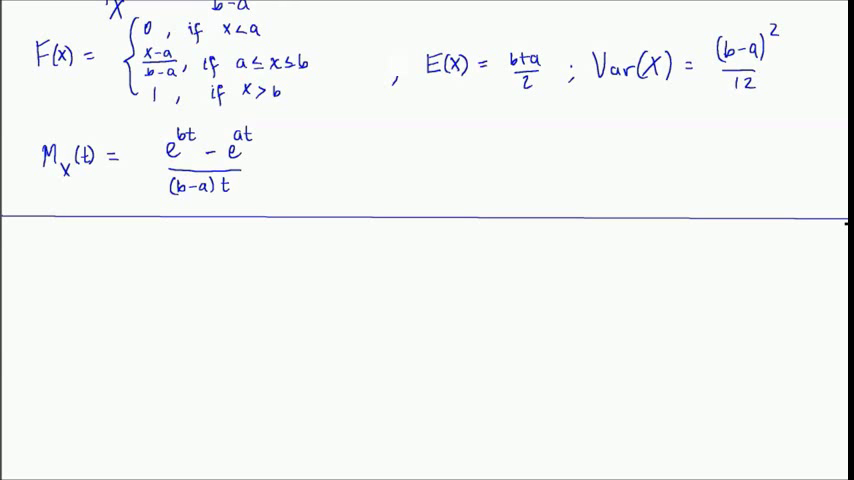 X b-a
F(x) = { 0 , if x<a
x-a / b-a , if a≤x≤b
1 , if x>b
, E(X) = b+a / 2 ; Var(X) = (b-a)² / 12
M_X(t) = e^bt - e^at / (b-a)t